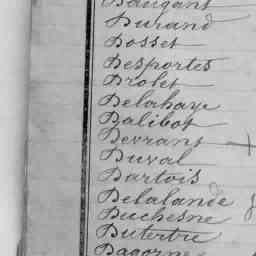 Daugant
Durand
Dosset
Desportes
Drolet
Delahaye
Dalibot
Devrans
Duval
Dartois
Delalande
Duchesne
Dutertre
Dagorne